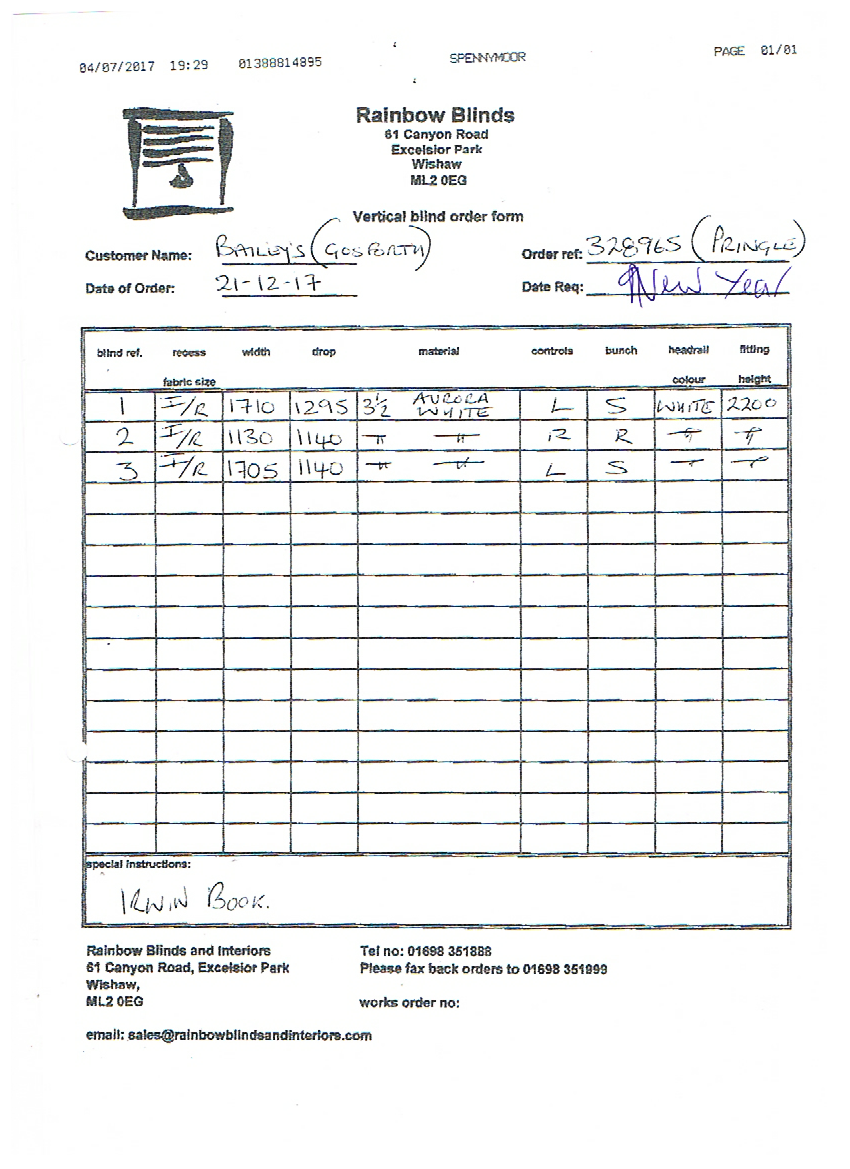 04/07/2017 19:29 01388814895 SPENNYMOOR PAGE 01/01
Rainbow Blinds
61 Canyon Road
Excelsior Park
Wishaw
ML2 0EG
Vertical blind order form
Customer Name: BAILEY'S (GOSFORTH) Order ref: 328965 (PRINGLE)
Date of Order: 21-12-17 Date Req: New Year
blind ref. recess width drop material controls bunch headrail fitting
fabric size colour height
1 I/R 1710 1295 3½ AURORA WHITE L S WHITE 2200
2 I/R 1130 1140 " " R R " "
3 I/R 1705 1140 " " L S " "
special instructions:
IRWIN BOOK.
Rainbow Blinds and Interiors Tel no: 01698 351888
61 Canyon Road, Excelsior Park Please fax back orders to 01698 351999
Wishaw,
ML2 0EG works order no:
email: sales@rainbowblindsandinteriors.com